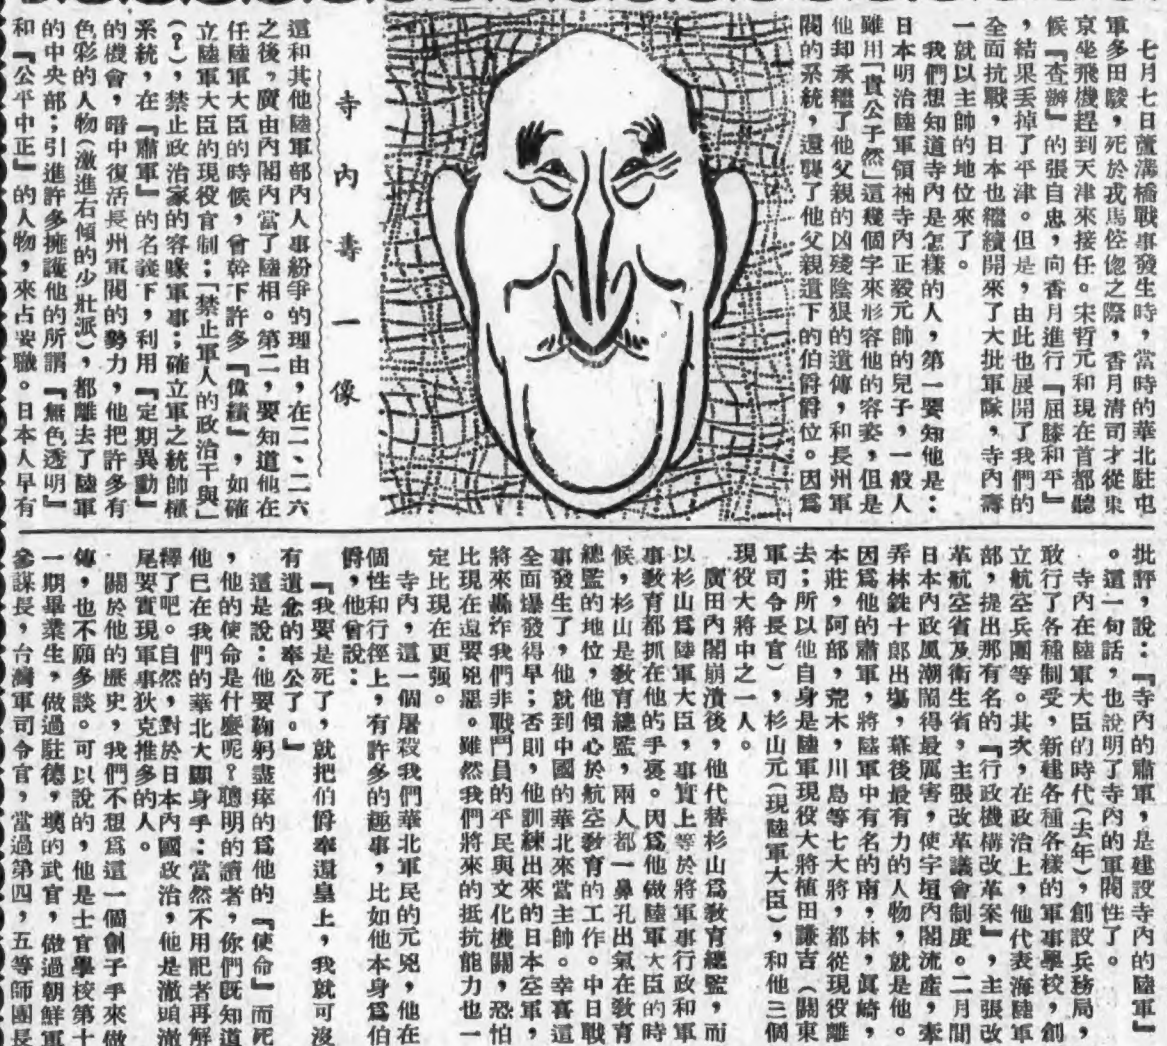 七月七日蘆溝橋戰事發生時，當時的華北駐屯
軍多田駿，死於戎馬倥偬之際，香月清司才從東
京坐飛機趕到天津來接任。宋哲元和現在首都聽
候『查辦』的張自忠，向香月進行『屈膝和平』
，結果丟掉了平津。但是，由此也展開了我們的
全面抗戰，日本也繼續開來了大批軍隊，寺內壽
一就以主帥的地位來了。
我們想知道寺內是怎樣的人，第一要知他是：
日本明治陸軍領袖寺內正毅元帥的兒子，一般人
雖用「貴公子然」這幾個字來形容他的容姿，但是
他却承繼了他父親的凶殘陰狠的遺傳，和長州軍
閥的系統，還襲了他父親遺下的伯爵爵位。因爲
寺內壽一像
這和其他陸軍部內人事紛爭的理由，在二、二六
之後，廣由內閣內當了陸相。第二，要知道他在
任陸軍大臣的時候，曾幹下許多『偉績』，如確
立陸軍大臣的現役官制；「禁止軍人的政治干與」
（？），禁止政治家的容喙軍事；確立軍之統帥權
系統，在『肅軍』的名義下，利用『定期異動』
的機會，暗中復活長州軍閥的勢力，他把許多有
色彩的人物（激進右傾的少壯派），都離去了陸軍
的中央部；引進許多擁護他的所謂『無色透明』
和『公平中正』的人物，來占要職。日本人早有
批評，說：『寺內的肅軍，是建設寺內的陸軍』
。這一句話，也說明了寺內的軍閥性了。
寺內在陸軍大臣的時代（去年），創設兵務局，
敢行了各種制受，新建各種各樣的軍事學校，創
立航空兵團等。其次，在政治上，他代表海陸軍
部，提出那有名的『行政機構改革案』，主張改
革航空省及衛生省，主張改革議會制度。二月間
日本內政風潮鬧得最厲害，使宇垣內閣流產，牽
弄林銑十郎出場，幕後最有力的人物，就是他。
因爲他的肅軍，將陸軍中有名的南，林，眞崎，
本莊，阿部，荒木，川島等七大將，都從現役離
去；所以他自身是陸軍現役大將植田謙吉（關東
軍司令長官），杉山元（現陸軍大臣），和他三個
現役大將中之一人。
廣田內閣崩潰後，他代替杉山爲敎育總監，而
以杉山爲陸軍大臣，事實上等於將軍事行政和軍
事敎育都抓在他的手裏。因爲他做陸軍大臣的時
候，杉山是敎育總監，兩人都一鼻孔出氣在敎育
總監的地位，他傾心於航空敎育的工作。中日戰
事發生了，他就到中國的華北來當主帥。幸喜這
全面爆發得早；否則，他訓練出來的日本空軍，
將來轟炸我們非戰鬥員的平民與文化機關，恐怕
比現在還要兇惡。雖然我們將來的抵抗能力也一
定比現在更强。
寺內，這一個屠殺我們華北軍民的元兇，他在
個性和行徑上，有許多的趣事，比如他本身爲伯
爵，他曾說：
『我要是死了，就把伯爵奉還皇上，我就可沒
有遺念的奉公了。』
這是說：他要鞠躬盡瘁的爲他的『使命』而死
，他的使命是什麼呢？聰明的讀者，你們旣知道
他已在我們的華北大顯身手：當然不用記者再解
釋了吧。自然，對於日本內國政治，他是澈頭澈
尾要實現軍事狄克推多的人。
關於他的歷史，我們不想爲這一個劊子手來做
傳，也不願多談。可以說的，他是士官學校第十
一期畢業生，做過駐德，墺的武官，做過朝鮮軍
參謀長，台灣軍司令官，當過第四，五等師團長